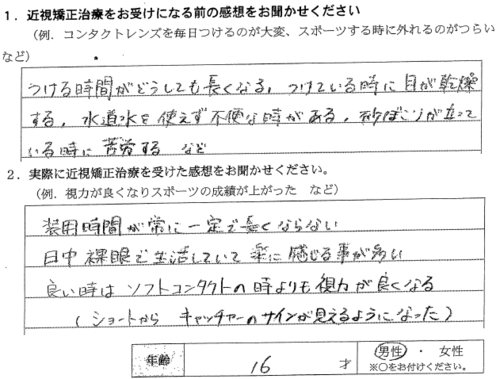 1．近視矯正治療をお受けになる前の感想をお聞かせください
（例．コンタクトレンズを毎日つけるのが大変、スポーツする時に外れるのがつらい
など）
つける時間がどうしても長くなる，つけている時に目が乾燥
する，水道水を使えず不便な時がある，砂ぼこりが立って
いる時に苦労する など
2．実際に近視矯正治療を受けた感想をお聞かせください。
（例．視力が良くなりスポーツの成績が上がった など）
装用時間が常に一定で長くならない
日中裸眼で生活していて楽に感じる事が多い
良い時はソフトコンタクトの時よりも視力が良くなる
（ショートから キャッチャーのサインが見えるようになった）
年齢 16 才 男性 ・ 女性
※○をお付けください。